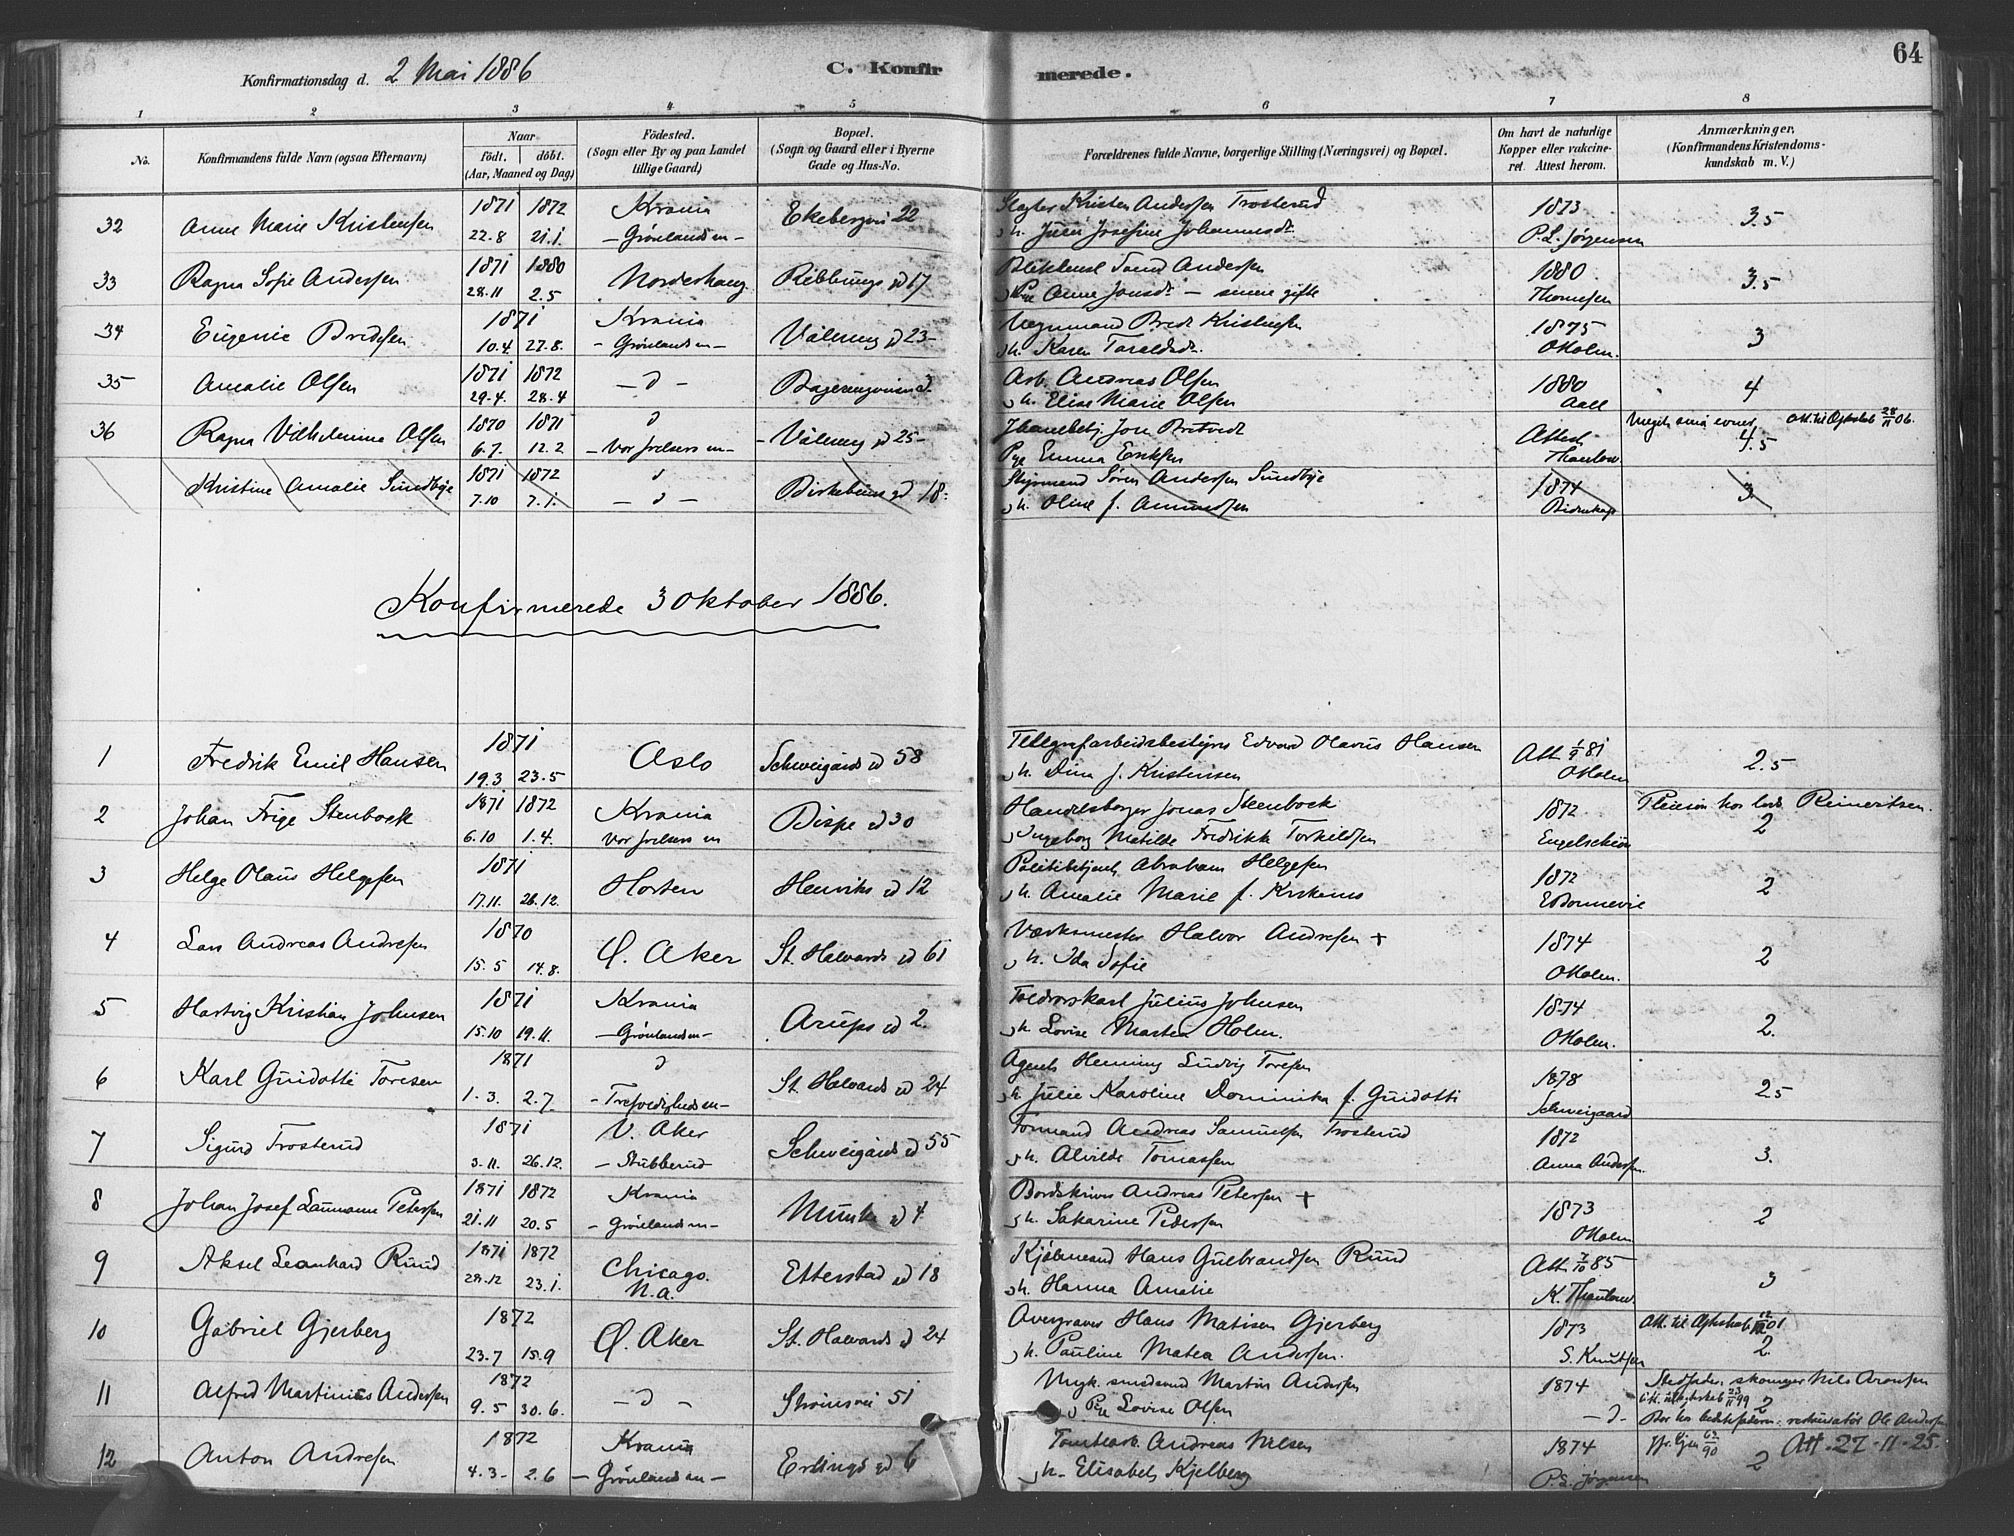 64
Konfirmationsdag d. 2 Mai 1886
C. Konfirmerede.
1 2 3 4 5 6 7 8
No.
Konfirmandens fulde Navn (ogsaa Efternavn)
Naar
födt. | döbt.
(Aar, Maaned og Dag)
Födested.
(Sogn eller By og paa Landet
tillige Gaard)
Bopæl.
(Sogn og Gaard eller i Byerne
Gade og Hus-No.
Forældrenes fulde Navne, borgerlige Stilling (Næringsvei) og Bopæl.
Om havt de naturlige
Kopper eller vakcine-
ret. Attest herom.
Anmærkninger.
(Konfirmandens Kristendoms-
kundskab m. V.)
32 Anne Marie Kristensen 1871 22.8 1872 21.1. Krania -Grönlandsm- Ekebergvei 22
Slagter Kristen Andersen Trosterud
h. Julie Josefine Johannesdt. 1873 P.L. Jørgensen 3.5
33 Ragna Sofie Andersen 1871 28.11 1880 2.5 Norderhaug Ribbungs gd 17
Andersen
Pge Anne Jonsdt - senere gifte 1880 Thomesen 3.5
34 Eugenie Bredesen 1871 10.4. 27.8. Krania -Grönlandsm- Vålereng gd 23-
Vognmand Brede Kristensen
h. Karen Taraldsdt. 1875 O Holm. 3
35 Amalie Olsen 1871 29.4. 1872 28.4 - d -
Arb. Andreas Olsen
h. Elise Marie Olsen 1880 Aall 4
36 Ragna Vilhelmine Olsen 1870 6.7. 1871 12.2 d -Vor frelsers m- -Vålereng gd 25-
Jon
Pge Emma Eriksen Attest Thaulow. Meget små evner 4.5 Att. til Ægteskab 28/11 06.
Kristine Amalie Sundbye 1871 7.10 1872 7.1. d - d - Birkebeiner gd 18.
Styrmand Sören Andersen Sundbye
h. Oline f. Amundsen 1874 Bidenkap 3
Konfirmerede 3 Oktober 1886.
1 Fredrik Emil Hansen 1871 19.3 23.5 Oslo Schweigårds gd 58
Telegrafarbeidsbestyrer Edvard Olavus Hansen
h. Dina f. Kristensen Att 1/9 81 O Holm 2.5
2 Johan Frige Stenbock 1871 6.10 1872 1.4. Krania Vor frelsers m Bispe gd 30
Handelsborger Jonas Steenbock
Ingeborg Matilde Fredrikke Torkildsen 1872 Engelschiøn Pleiesøn hos Reinertsen. 2
3 Helge Olaus Helgesen 1871 17.11. 26.12. Horten Henriks gd 12
Politibetjent Abraham Helgesen
h. Amalie Marie f. 1872 Bonnevie 2
4 Lars Andreas Andresen 1870 15.5 14.8. Ø. Aker St. Halvards gd 61
Værksmester Halvor Andresen +
h. Ida Sofie 1874 O Holm. 2
5 Hartvig Kristian Johnsen 1871 15.10 19.11. Krania -Grönlandsm- Arups gd 2.
Toldrorskarl Julius Johnsen
h. Lovise Martea Holm. 1874 O Holm. 2.
6 Karl Guidotti Toresen 1871 1.3. 2.7. d -Trefoldighedsm- St. Halvards gd 24
Agent Henning Ludvig Toresen
h. Julie Karoline Dominika f. Guidotti 1878 Schweigaard 2.5
7 Sigurd Trosterud 1871 3.11. 26.12. V. Aker -Stubberud- Schweigårds gd 55
Formand Andreas Samuelsen Trosterud
h. Alvilde Tomassen 1872 Anna Andersen. 3.
8 Johan Josef Laumann Petersen 1871 21.11 1872 20.5 Krania -Grönlandsm- Munke gd 4
Bordskriver Andreas Petersen +
h. Sakarine Pedersen 1873 O Holm 2
9 Aksel Leonhard Ruud 1871 28.12 1872 23.1. Chicago. N.a. Etterstad gd 18
Kjølmand Hans Gulbrandsen Ruud
h. Hanna Amalie Att 7/10 85 K. Thaulow. 3
10 Gabriel Gjerberg 1872 23.7 15.9 Ø. Aker St. Halvards gd 24
Avergraver Hans Matisen Gjerberg
h. Pauline Matea Andersen. 1873 S. Knutsen Att. til Ægteskab 01 2.
11 Alfred Martinius Andersen 1872 9.5 30.6. - d - Strömsvei 51
Ungk. smedsvend Martin Andersen
Pge Lovise Olsen 1874 - d - Stedfader, skomager Nils Aronsen
23/11 99 2
Bor hos bedstefaderen, Ole Andersen
12 Anton Andresen 1872 4.3- 2.6 Krania -Grönlandsm- Erlings gd 6
Tomtearb. Andreas Nilsen
h. Elisabet Kjelberg 1874 P.L. Jørgensen 2 Att. 27-11-25.